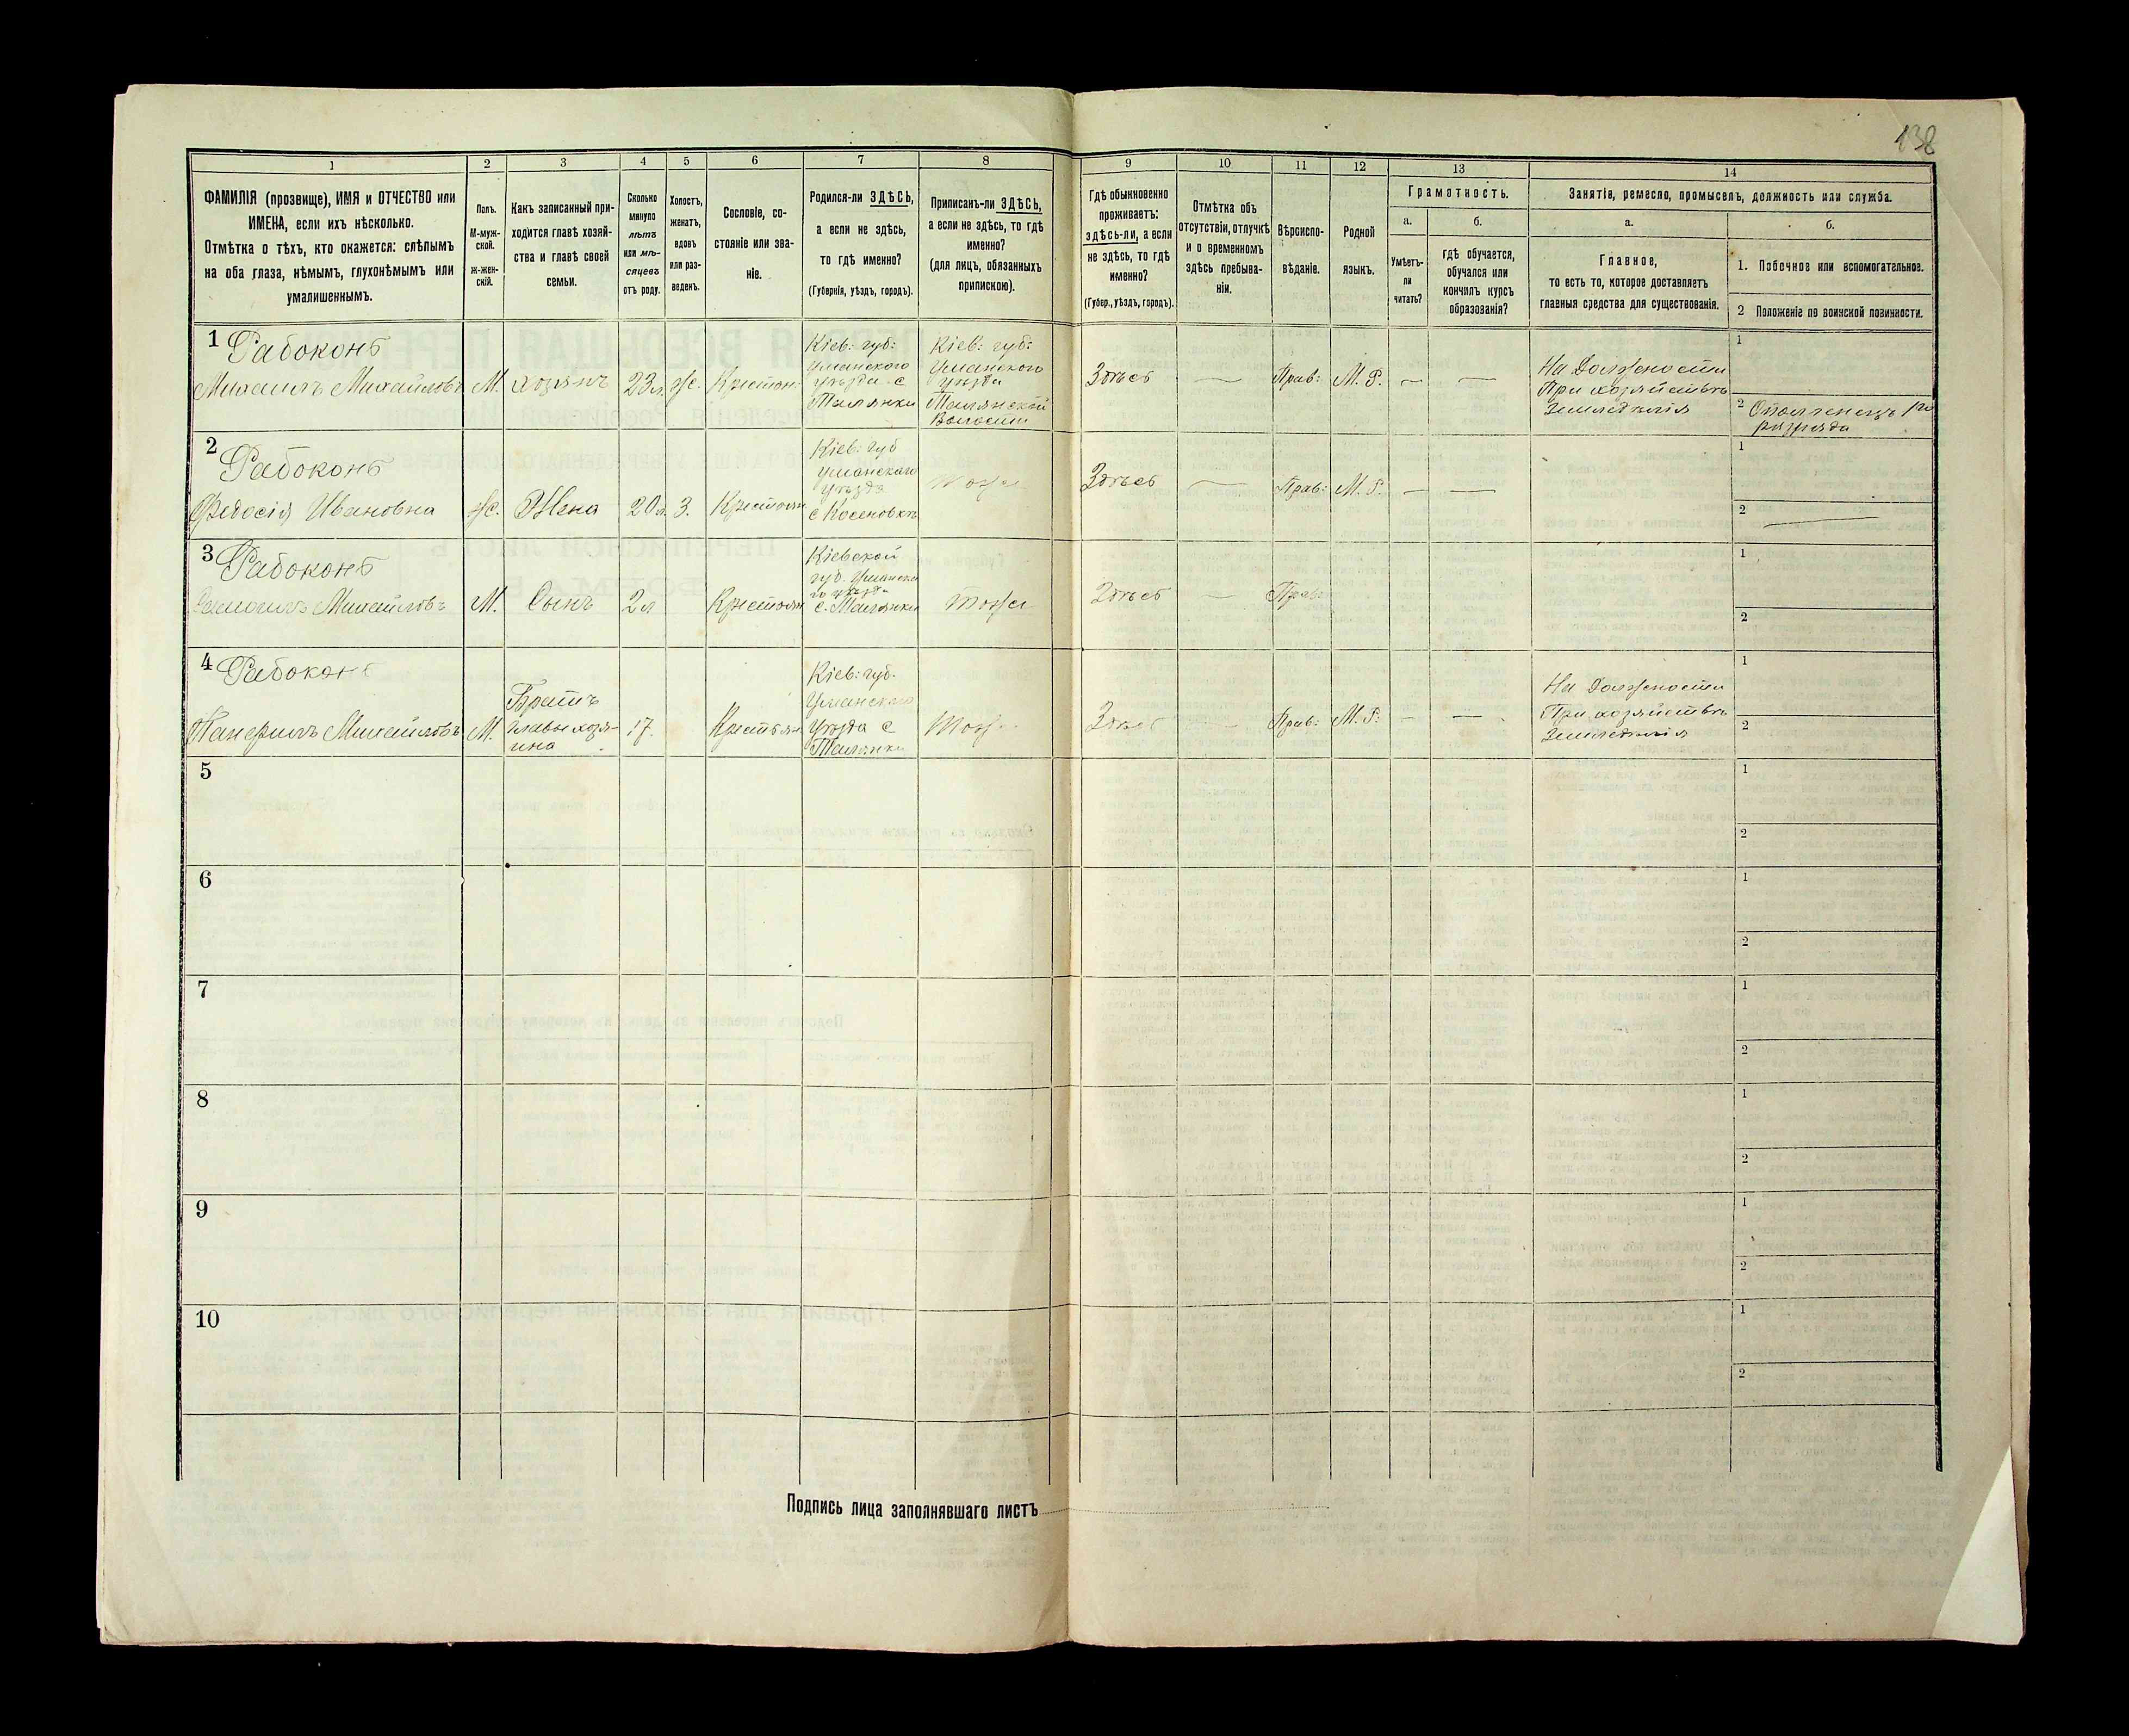 138
1
2
3
4
5
6
7
8
9
10
11
12
13
14
ФАМИЛІЯ (прозвище), ИМЯ и ОТЧЕСТВО или
ИМЕНА, если ихъ нѣсколько.
Отмѣтка о тѣхъ, кто окажется: слѣпымъ
на оба глаза, нѣмымъ, глухонѣмымъ или
умалишеннымъ.
Полъ.
М-муж-
ской.
ж-жен-
скій.
Какъ записанный при-
ходится главѣ хозяй-
ства и главѣ своей
семьи.
Сколько
минуло
лѣтъ
или мѣ-
сяцевъ
отъ роду.
Холостъ,
женатъ,
вдовъ
или раз-
веденъ.
Сословіе, со-
стояніе или зва-
ніе.
Родился-ли ЗДѢСЬ,
а если не здѣсь,
то гдѣ именно?
(Губернія, уѣздъ, городъ).
Приписанъ-ли ЗДѢСЬ,
а если не здѣсь, то гдѣ
именно?
(для лицъ, обязанныхъ
припискою).
Гдѣ обыкновенно
проживаетъ:
здѣсь-ли, а если
не здѣсь, то гдѣ
именно?
(Губер., уѣздъ, городъ).
Отмѣтка объ
отсутствіи, отлучкѣ
и о временномъ
здѣсь пребыва-
ніи.
Вѣроиспо-
вѣданіе.
Родной
языкъ.
Грамотность.
а.
б.
Умѣетъ-
ли
читать?
гдѣ обучается,
обучался или
кончилъ курсъ
образованія?
Занятіе, ремесло, промыселъ, должность или служба.
а.
б.
Главное,
то есть то, которое доставляетъ
главныя средства для существованія.
1. Побочное или вспомогательное.
2 Положеніе по воинской повинности.
1 Рабоконь
Михаилъ Михайловъ
М.
хозяинъ
23 л.
Ж.
Крестьян
Кіев: губ:
Уманского
уѣзда с
Талянки
Кіев: губ:
Уманского
уѣзда
Талянской
Волости
Здѣсь
—
Прав:
М. Р.
—
—
На Должности
При хозяйствѣ
Земледѣлія
1
2 Ополченецъ 1го
разряда
2 Рабоконь
Федосія Ивановна
ж.
Жена
20 л.
З.
Крестьян
Кіев: губ
Уманскаго
уѣзда
с Косеновки
тоже
Здѣсь
—
Прав:
М. Р.
—
—
1
2
3 Рабоконь
Михайловъ
М.
Сынъ
2 л
Крестьян
Кіевской
губ. Уманска
го уѣзда
с. Талянки
тоже
Здѣсь
—
Прав:
1
2
4 Рабоконь
Панфилъ Михайловъ
М.
Братъ
главы хозя-
ина
17.
Крестьян
Кіев: губ.
Уманскаго
уѣзда с
Талянки
тоже
Здѣсь
—
Прав:
М. Р:
—
—
На Должности
При хозяйствѣ
Земледѣлія
1
2
5
1
2
6
1
2
7
1
2
8
1
2
9
1
2
10
1
2
Подпись лица заполнявшаго листъ